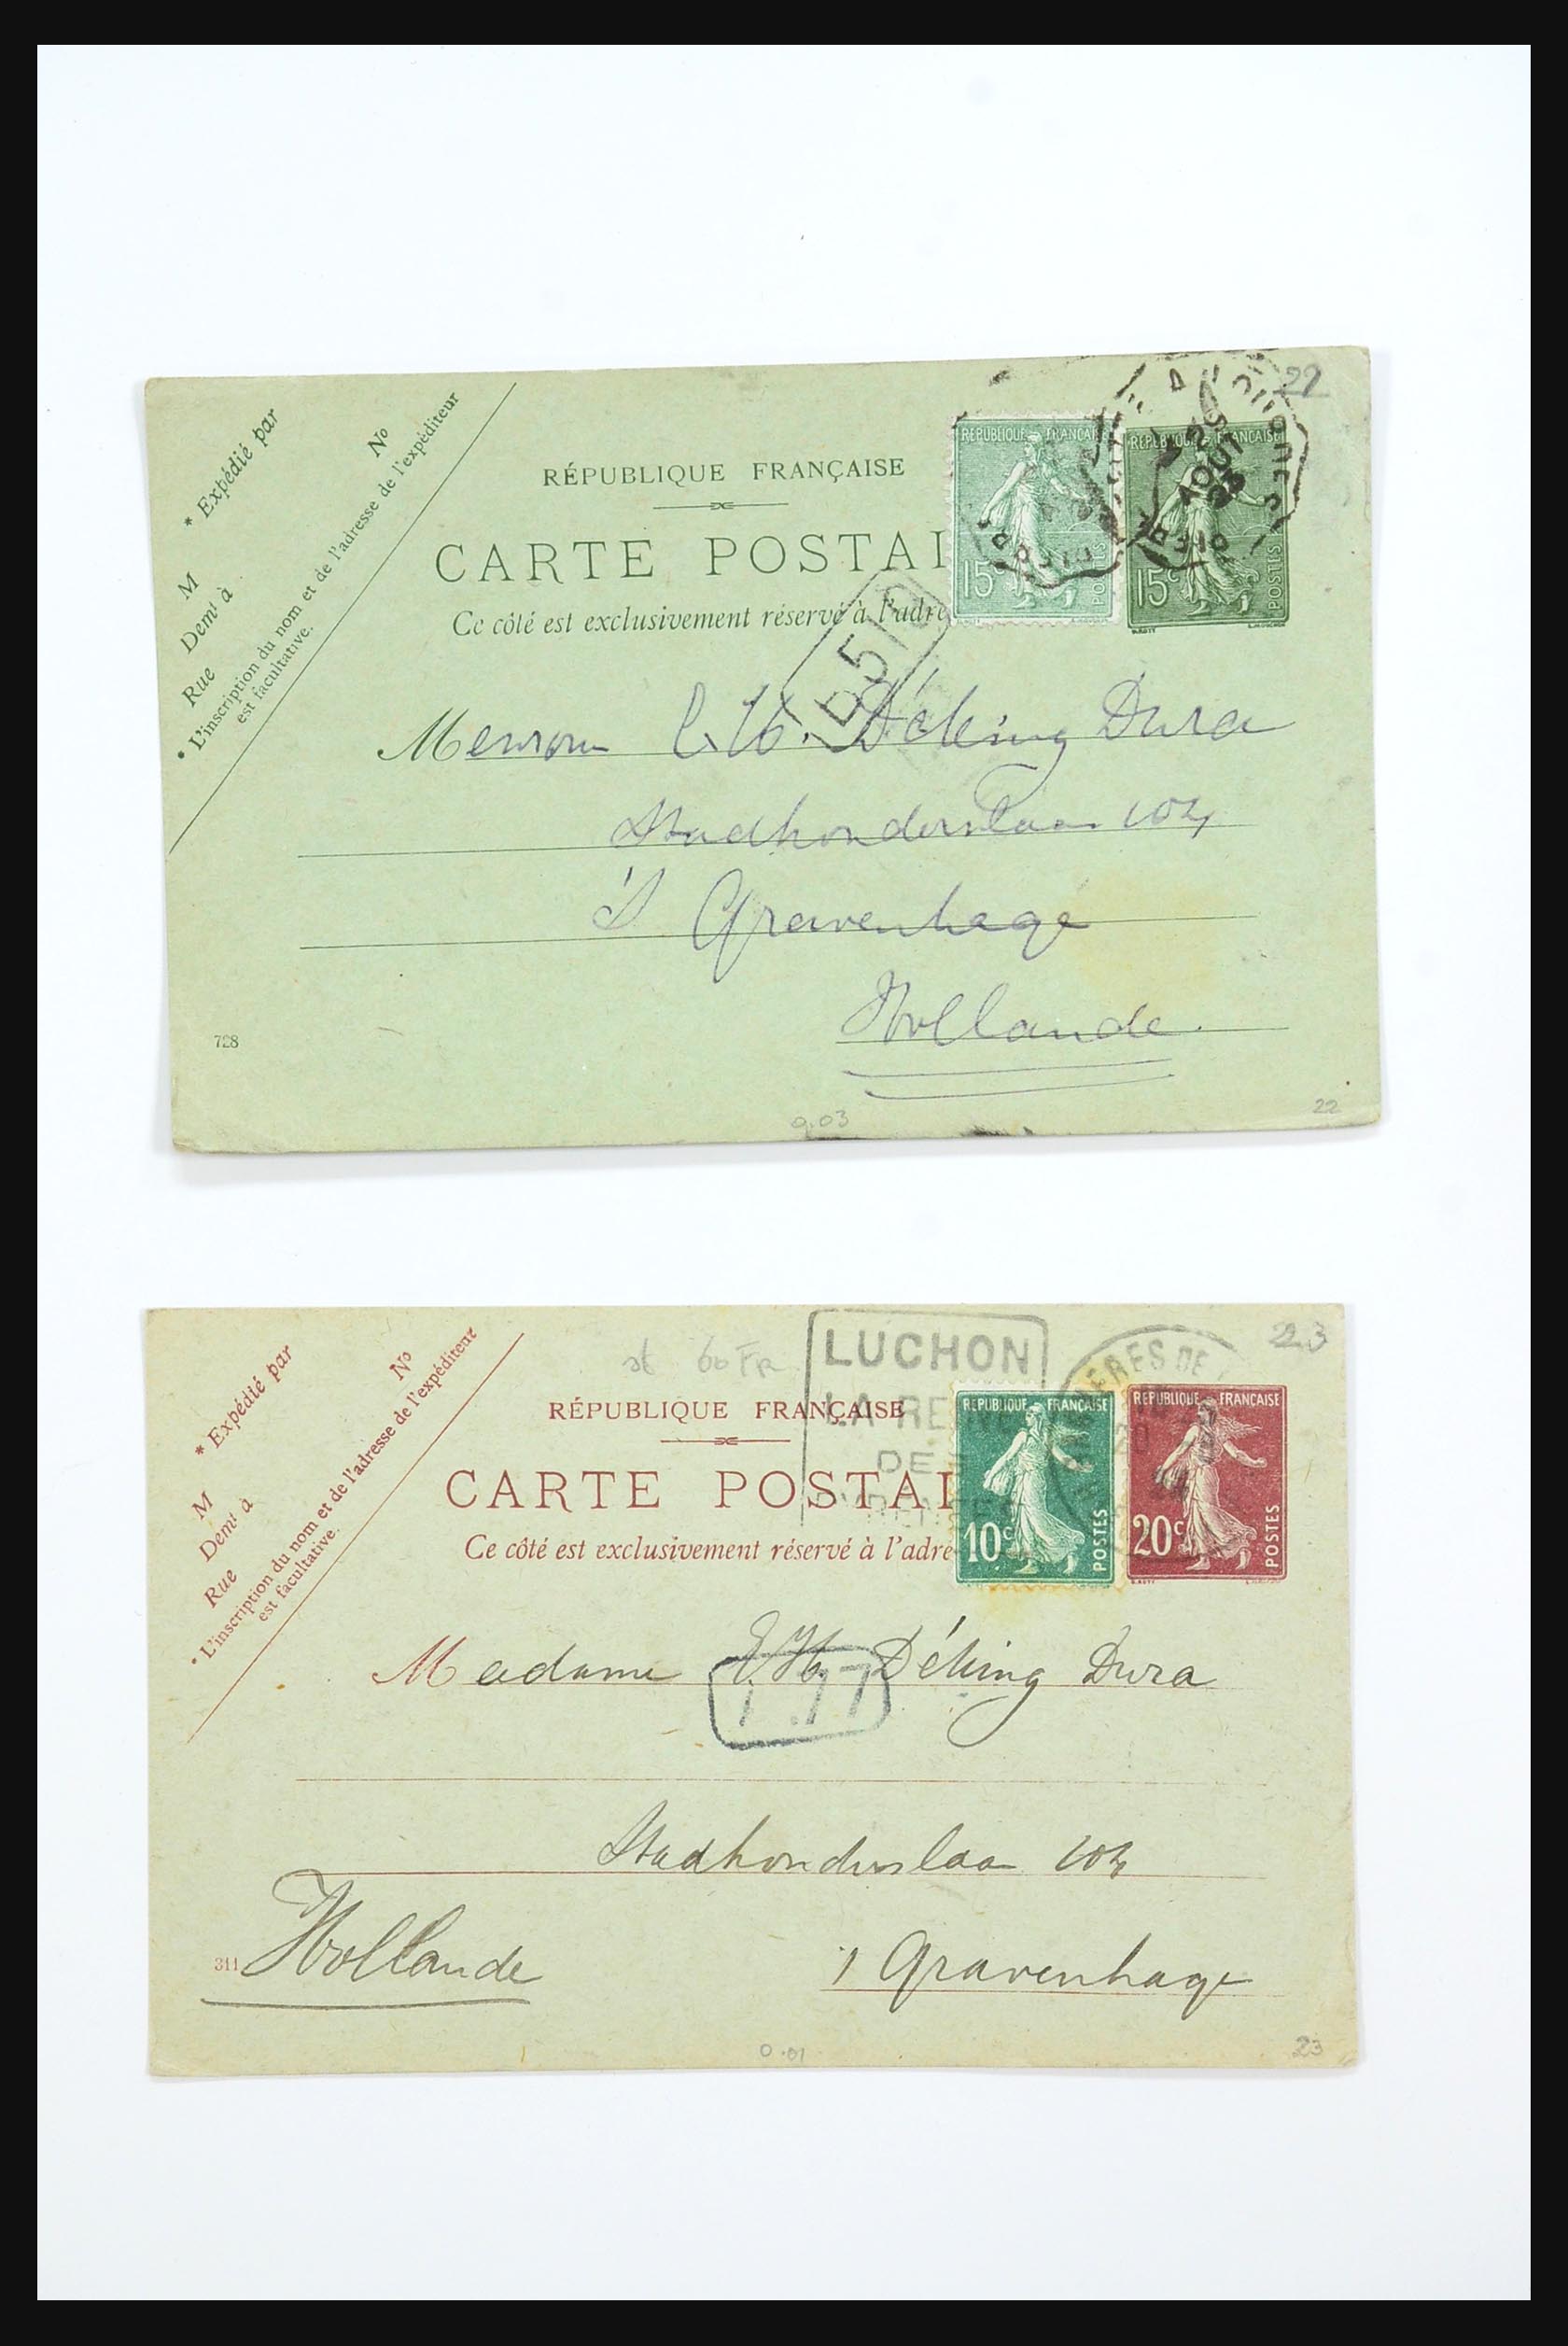 * Expédié par
No
M
Demt à
Rue
* L'inscription du nom et de l'adresse de l'expéditeur
est facultative.
RÉPUBLIQUE FRANÇAISE
CARTE POSTAL
Ce côté est exclusivement réservé à l'adre
RÉPUBLIQUE FRANÇAISE
15c
POSTES
RÉPUBLIQUE FRANÇAISE
15c
POSTES
25
AOUT
22
M Déking Dura
Stadhouderslaan 104
's Gravenhage
Hollande.
728
0.03
22
* Expédié par
No
M
Demt à
Rue
* L'inscription du nom et de l'adresse de l'expéditeur
est facultative.
60 FR
LUCHON
LA REINE
DES
PYRENEES
23
RÉPUBLIQUE FRANÇAISE
CARTE POSTAL
Ce côté est exclusivement réservé à l'adre
RÉPUBLIQUE FRANÇAISE
10c
POSTES
RÉPUBLIQUE FRANÇAISE
20c
POSTES
Madame E.H. Déking Dura
Stadhouderslaan 104
's Gravenhage
311
Hollande
0.01
23